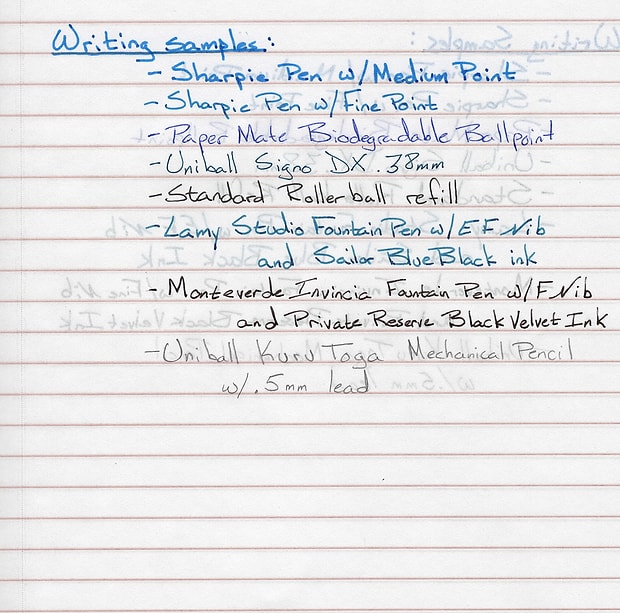 Writing Samples:
- Sharpie Pen w/Medium Point
- Sharpie Pen w/Fine Point
- Paper Mate Biodegradable Ballpoint
- Uniball Signo DX .38mm
- Standard Rollerball refill
- Lamy Studio Fountain Pen w/EF Nib
and Sailor Blue Black ink
- Monteverde Invincia Fountain Pen w/F Nib
and Private Reserve Black Velvet Ink
- Uniball Kuru Toga Mechanical Pencil
w/.5mm lead